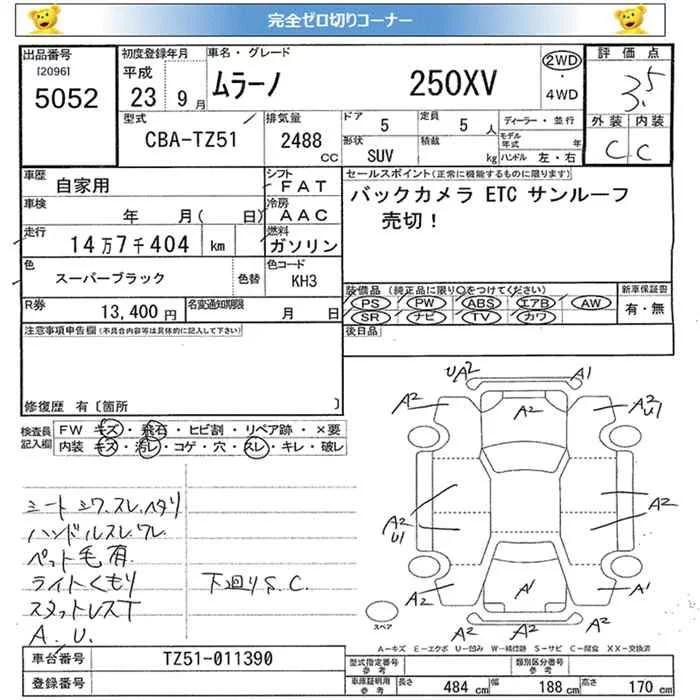 完全ゼロ切りコーナー
出品番号
[2096]
5052
初度登録年月
平成
23 9月
車名・グレード
ムラーノ 250XV
2WD
・
4WD
評価点
3.5
外装 内装
C C
型式
CBA-TZ51
排気量
2488
cc
ドア 5
定員 5 人
形状 SUV
積載 kg
ディーラー・並行
モデル年式 年式
ハンドル 左・右
車歴
自家用
シフト
FAT
車検
年 月( 日)
冷房
AAC
走行
14万7千404 km
燃料
ガソリン
色
スーパーブラック
色替
色コード
KH3
R券
13,400 円
名変通知期限
月 日
セールスポイント(正常に機能するものに限ります)
バックカメラ ETC サンルーフ
売切!
装備品 (純正品に限り〇をつけてください)
PS PW ABS エアB AW
SR ナビ TV カワ
新車保証書
有・無
後日品
注意事項申告欄(不具合内容等は具体的に記入して下さい)
修復歴 有〔箇所 〕
検査員
記入欄
FW キズ・飛石・ヒビ割・リペア跡・×要
内装 キズ・汚レ・コゲ・穴・スレ・キレ・破レ
シート シワ、スレ、ヘタリ
ハンドルスレ、ワレ
ペット毛有
ライトくもり
スタットレスT
A.U.
下廻りS.C.
UA2 A1
A2 A2 A2
U1
A2
U1
A2
A2
A2 A1 A1
A2 A2
スペア
A－キズ E－エクボ U－凹み W－補修跡 S－サビ C－腐食 XX－交換済
車台番号
TZ51-011390
登録番号
型式指定番号
参考
類別区分番号
参考
車庫証明用
参考
長さ 484 cm
幅 188 cm
高さ 170 cm